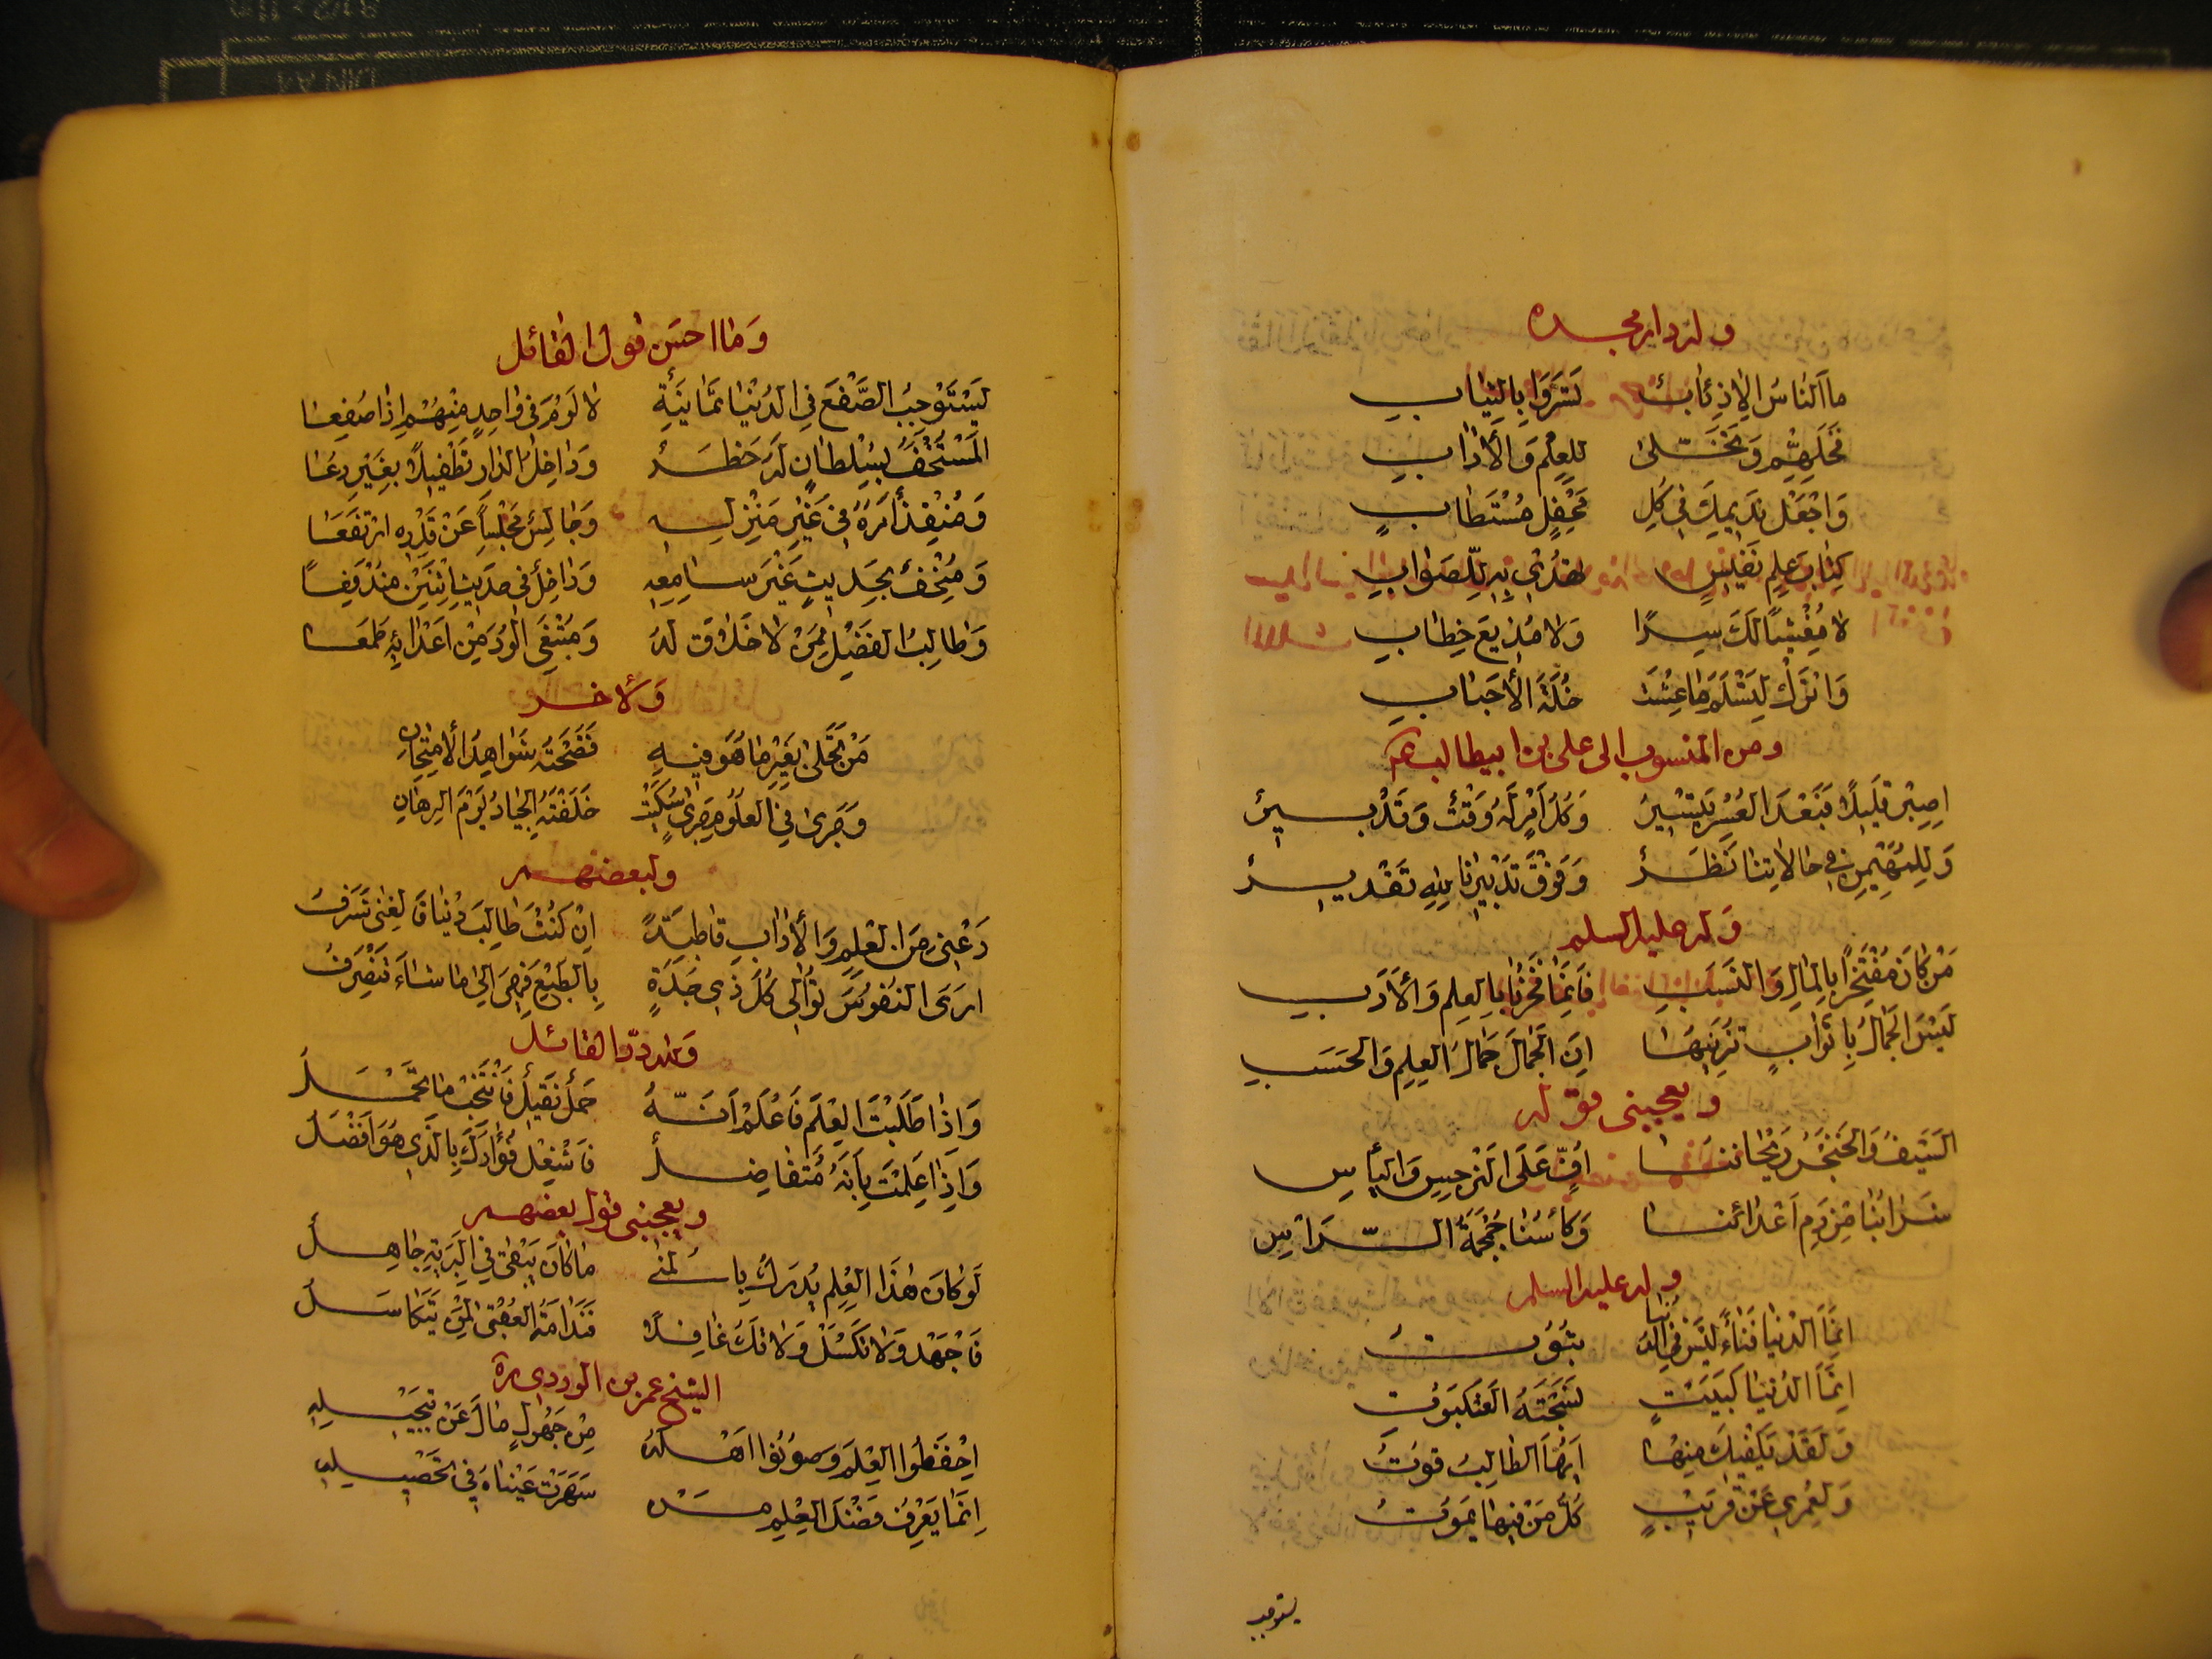 وله دام مجده
ما الناس الا ذئاب تستروا بالثياب
فخلهم وتخلى للعلم والاداب
واجعل نديمك في كل محفل مستطاب
كتاب علم نفيس تهدى به للصواب
لا مفشيا لك سرا ولا مذيع خطاب
واترك لتسلم ما عشت خلة الأحباب
ومن المنسوب الى على بن ابيطالب عم
اصبر قليلا فبعد العسر تيسير وكل امر له وقت وتدبير
وللمهيمن في حالاتنا نظر وفوق تدبيرنا لله تقدير
وله عليه السلم
من كان مفتخرا بالمال والنسب فانما فخرنا بالعلم والأدب
ليس الجمال باثواب تزينها ان الجمال جمال العلم والحسب
ويعجبنى قوله
السيف والخنجر ريحاننا اف على النرجس والياس
شرابنا من دم اعدائنا وكأسنا جمجمة الراس
وله عليه السلم
انما الدنيا فناء ليس في الدنيا ثبوت
انما الدنيا كبيت نسجته العنكبوت
ولقد يكفيك منها ايها الطالب قوت
ولعمرى عن قريب كل من فيها يموت
يستوجب
وما احسن قول القائل
يستوجب الصفع في الدنيا ثمانية لا لوم في واحد منهم اذا صفعا
المستخف بسلطان له خطر وداخل الدار تطفيلا بغير دعا
ومنفذ امره في غير منزله وجالس مجلسا عن قدره ارتفعا
ومتحف بحديث غير سامعه وداخل في حديث اثنين مندفعا
وطالب الفضل ممن لا خلاق له ومبتغى الود من اعدائه طمعا
ولأخر
من تحلى بغير ما هو فيه فضحته شواهد الأمتحان
وجرى في العلوم جرى سكيت خلفته الجياد يوم الرهان
ولبعضهم
دعنى من العلم والأداب قاطبة ان كنت طالب دنيا فالغنى شرف
ارى النفوس توالى كل ذى جدة بالطبع فهي الى ما شاء تنصرف
ولله در القائل
واذا طلبت العلم فاعلم انه حمل ثقيل فانتخب ما تحمل
واذا علمت بانه متفاضل فاشغل فؤادك بالذى هو افضل
ويعجبنى قول بعضهم
لو كان هذا العلم يدرك بالمنى ما كان يبقى في البرية جاهل
فاجهد ولا تكسل ولا تك غافلا فندامة العقبى لمن يتكاسل
الشيخ عمر بن الوردى ره
احفظوا العلم وصونوا اهله من جهول مال عن تبجيله
انما يعرف فضل العلم من سهرت عيناه في تحصيله